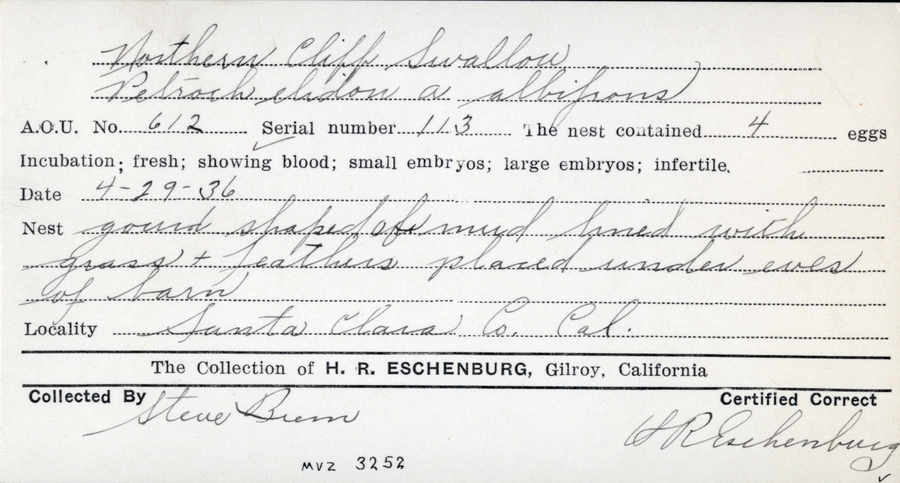 Northern Cliff Swallow
Petrochelidon a albifrons
A.O.U. No. 612 Serial number 113 The nest contained 4 eggs
Incubation; fresh; showing blood; small embryos; large embryos; infertile.
Date 4-29-36
Nest gourd shaped of mud lined with
grass + feathers placed under eves
of barn
Locality Santa Clara Co. Cal.
The Collection of H. R. ESCHENBURG, Gilroy, California
Collected By Certified Correct
Steve H R Eschenburg
MVZ 3252